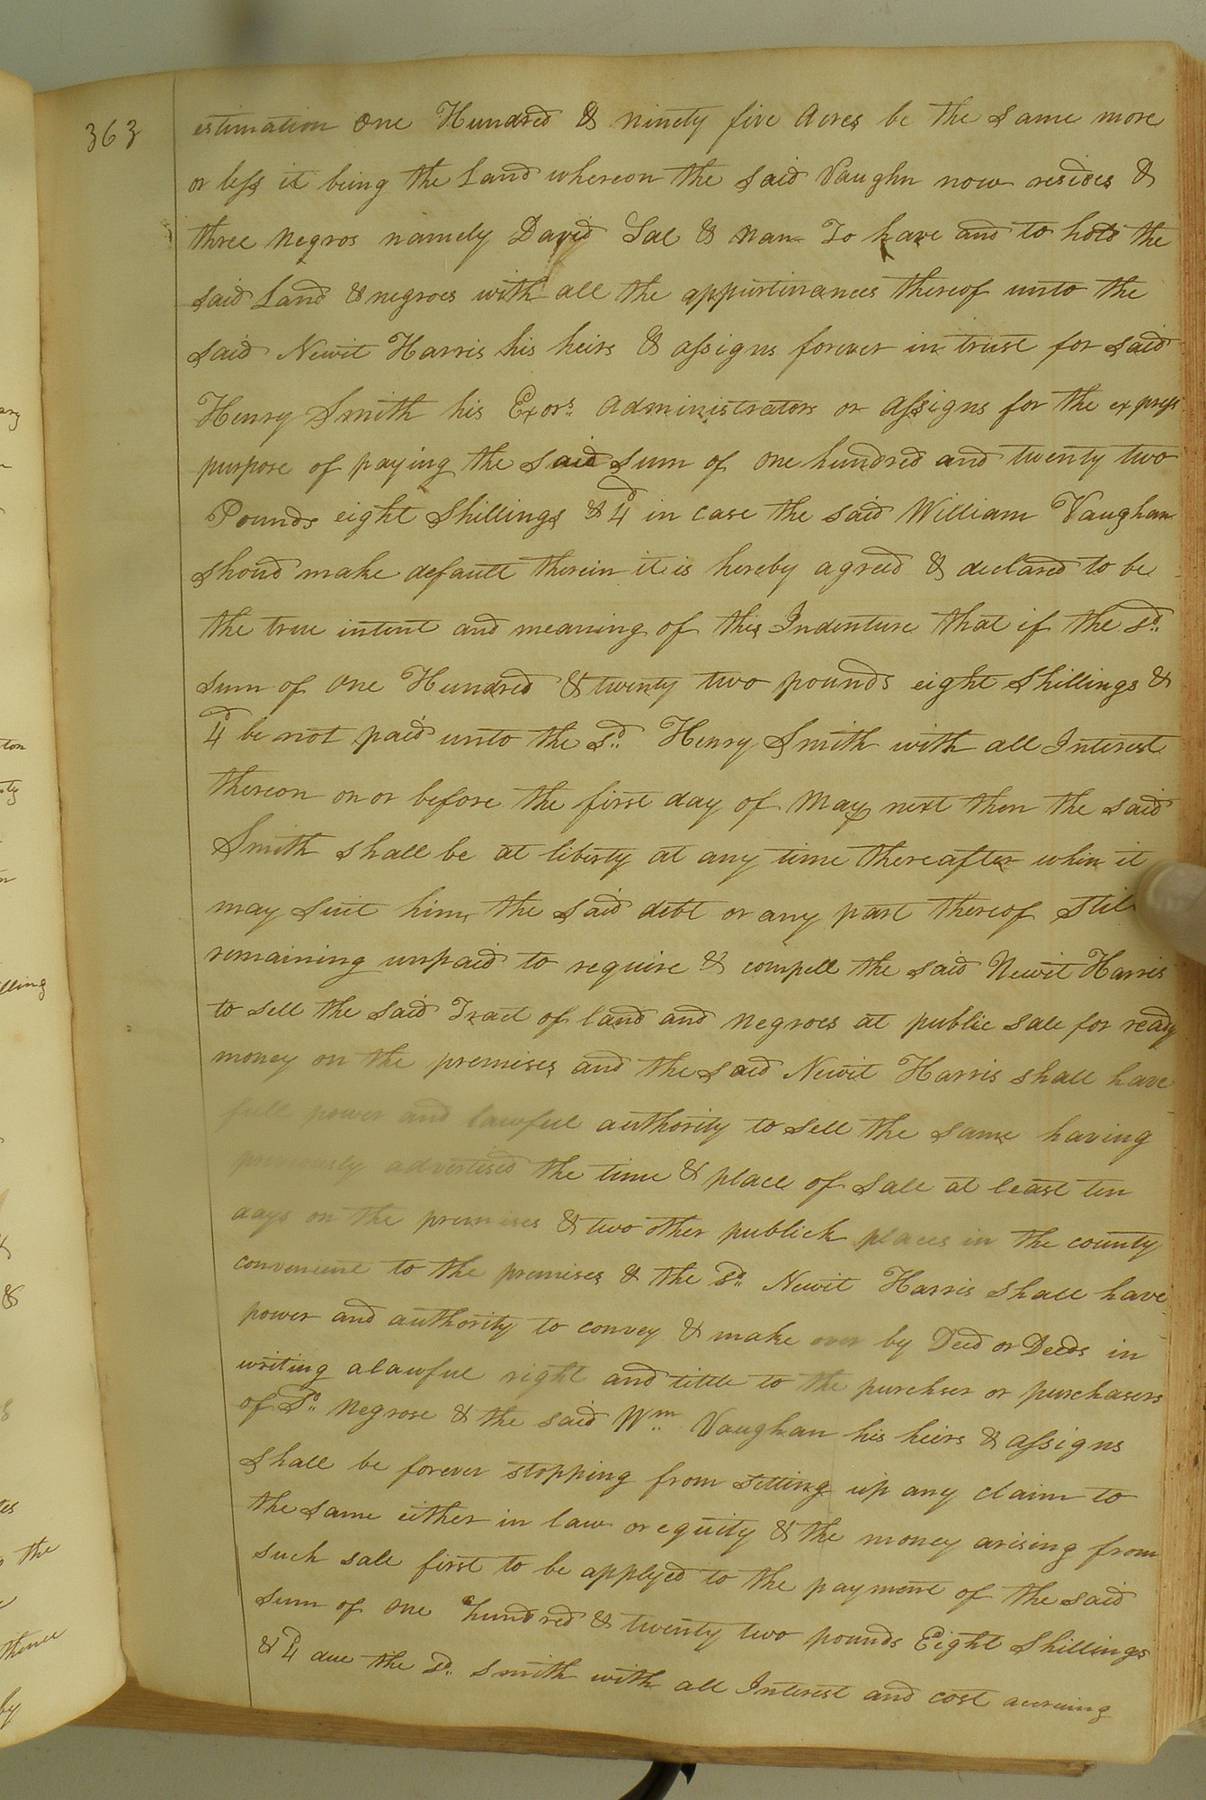 363
estimation One Hundred & ninety five Acres be the same more
or less it being the Land whereon the said Vaughn now resides &
three negros namely David Sal & Nan To have and to hold the
said Land & negroes with all the appurtinances thereof unto the
said Newit Harris his heirs & assigns forever in trust for said
Henry Smith his Exors. Administrators or assigns for the express
purpose of paying the said sum of one hundred and twenty two
Pounds eight Shillings & 4d in case the said William Vaughan
shoud make default therein it is hereby agreed & declared to be
the true intent and meaning of this Indenture that if the sd.
sum of one Hundred & twenty two pounds eight shillings &
4d be not paid unto the sd. Henry Smith with all Interest
thereon on or before the first day of May next then the said
Smith shall be at liberty at any time thereafter when it
may suit him the said debt or any part thereof stil
remaining unpaid to require & compell the said Newit Harris
to sell the said Tract of land and negroes at public sale for ready
money on the premises and the said Newit Harris shall have
full power and lawful authority to sell the same having
previously advertised the time & place of sale at least ten
days on the premises & two other publick places in the county
convenient to the premises & the sd. Newit Harris shall have
power and authority to convey & make over by Deed or Deeds in
writing a lawful right and title to the purchser or purchasers
of sd. negrose & the said Wm. Vaughan his heirs & assigns
shall be forever stopping from setting up any claim to
the same either in law or equity & the money arising from
such sale first to be applyed to the payment of the said
sum of one hundred & twenty two pounds Eight Shillings
& 4d due the sd. Smith with all Interest and cost accruing